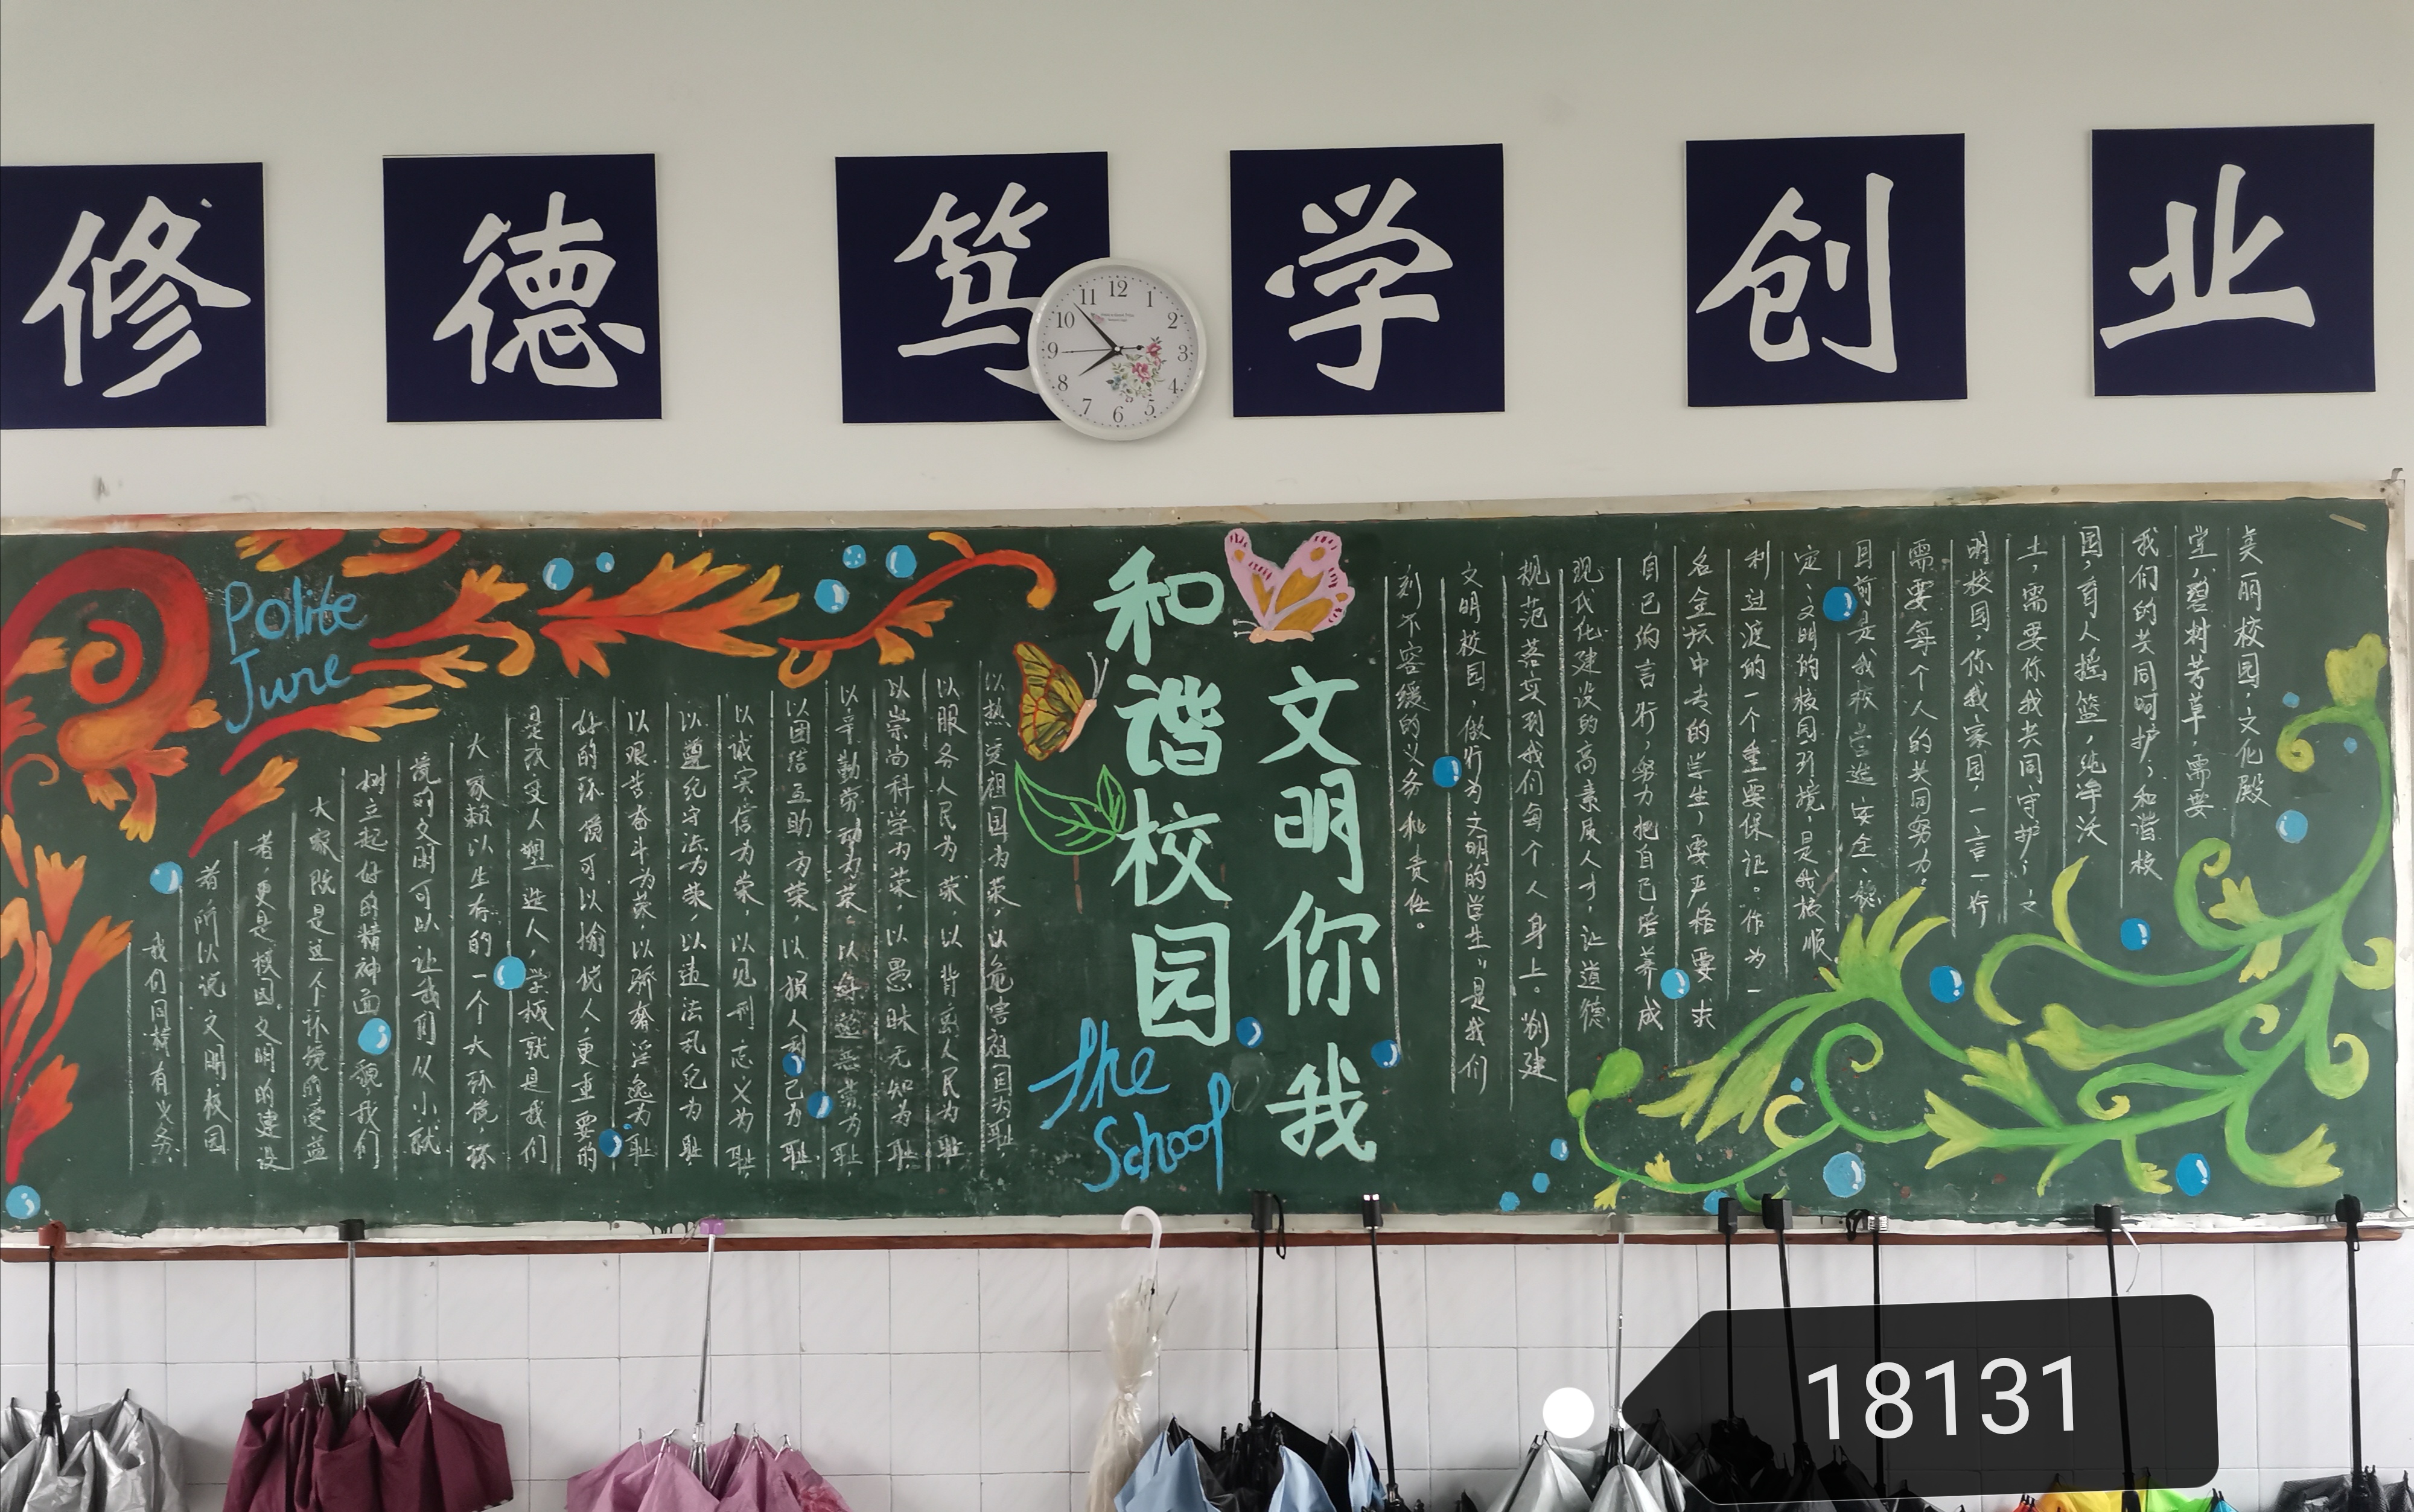 修 德 笃 学 创 业
12
1
2
3
4
5
6
7
8
9
10
11
文明你我
和谐校园
the
School
Polite
June
美丽校园,文化殿
堂,碧树芳草,需要
我们的共同呵护;和谐校
园,育人摇篮,纯净沃
土,需要你我共同守护;文
明校园,你我家园,一言一行
需要每个人的共同努力。
目前是我校营造安全、稳
定、文明的校园环境,是我校顺
利过渡的一个重要保证。作为一
名金坛中专的学生,要严格要求
自己的言行,努力把自己培养成
现代化建设的高素质人才,让道德
规范落实到我们每个人身上。创建
文明校园,做行为文明的学生,是我们
刻不容缓的义务和责任。
以热爱祖国为荣,以危害祖国为耻
以服务人民为荣,以背离人民为耻
以崇尚科学为荣,以愚昧无知为耻
以辛勤劳动为荣,以好逸恶劳为耻
以团结互助为荣,以损人利己为耻
以诚实信为荣,以见利忘义为耻
以遵纪守法为荣,以违法乱纪为耻
以艰苦奋斗为荣,以骄奢淫逸为耻
好的环境可以愉悦人,更重要的
是改变人塑造人,学校就是我们
大家赖以生存的一个大环境,环
境的文明可以让我们从小就
树立起好的精神面貌,我们
大家既是这个环境的受益
者,更是校园文明的建设
者所以说文明校园
我们同样有义务。
18131